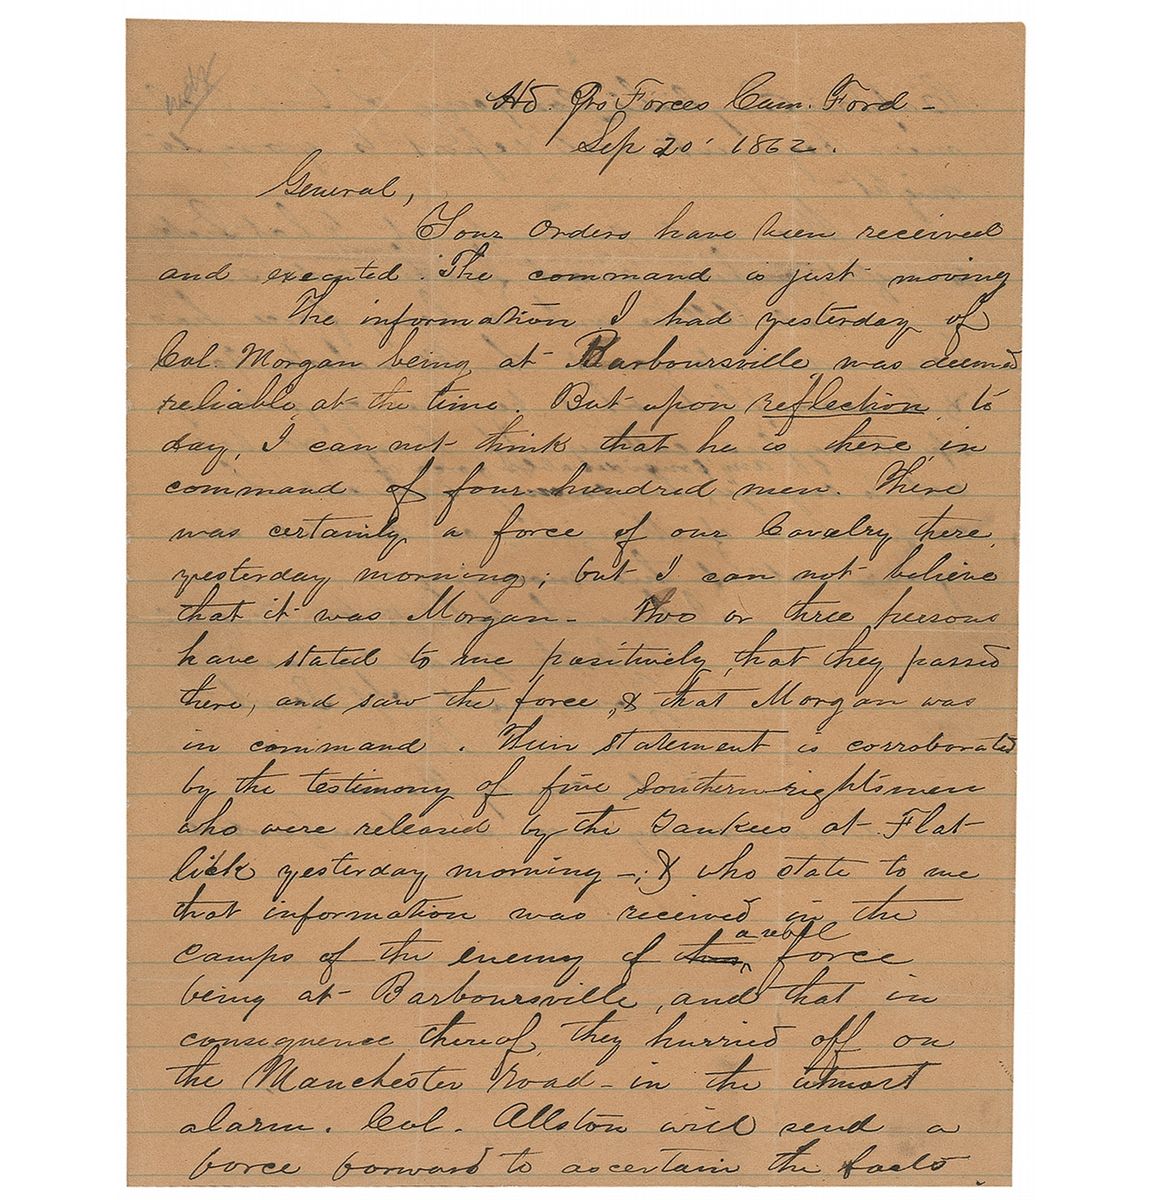 Hd. Qrs Forces Cum. Ford -
Sep 20' 1862.
General,
Your orders have been received
and executed. The command is just moving
The information I had yesterday of
Col. Morgan being at Barboursville, was deemed
reliable at the time. But upon reflection to
day, I can not think that he is there, in
command of four hundred men. There
was certainly a force of our Cavalry there,
yesterday morning; but I can not believe
that it was Morgan - Two or three persons
have stated to me positively, that they passed
there, and saw the force, & that Morgan was
in command. Their statement is corroborated
by the testimony of five Southern rights men
who were released by the Yankees at Flat
lick yesterday morning -; & who state to me
that information was received in the
a rebel
camps of the enemy of force
being at Barboursville, and that in
consequence thereof, they hurried off on
the Manchester road - in the utmost
alarm. Col. Allston will send a
force forward to ascertain the facts.